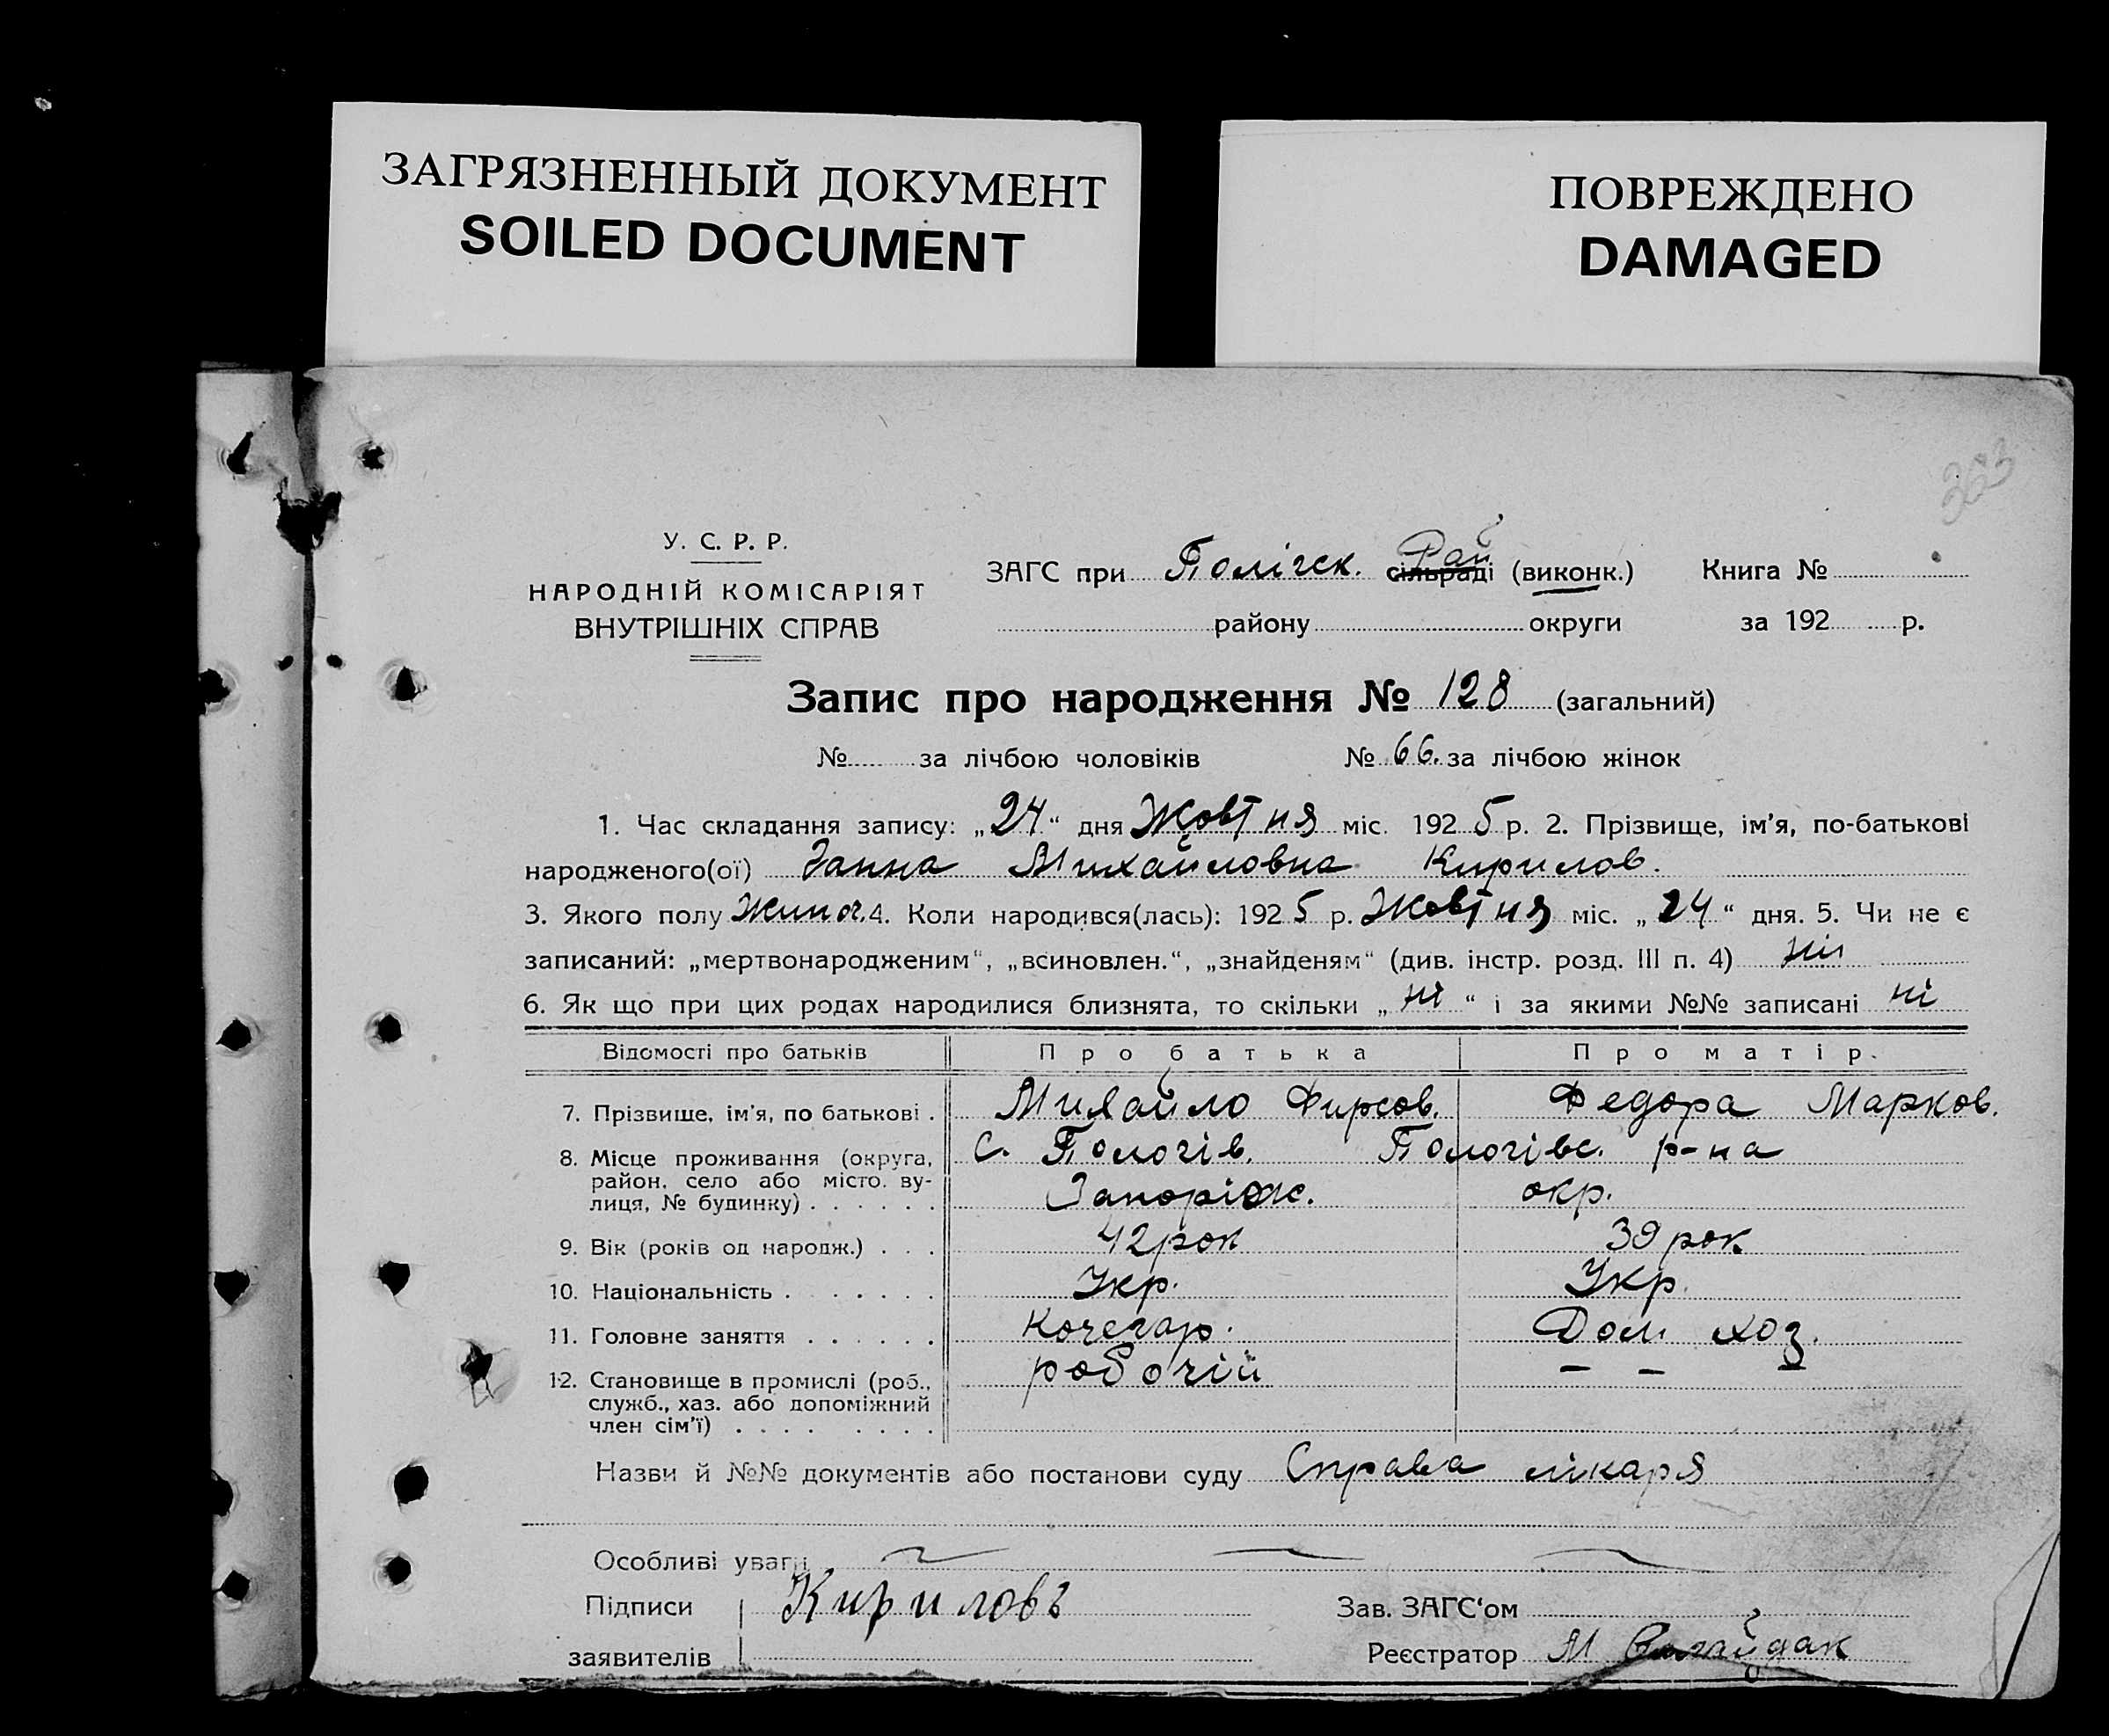 ЗАГРЯЗНЕННЫЙ ДОКУМЕНТ
SOILED DOCUMENT
ПОВРЕЖДЕНО
DAMAGED
363
У. С. Р. Р.
НАРОДНІЙ КОМІСАРІЯТ
ВНУТРІШНІХ СПРАВ
ЗАГС при Полігск. Рай сільраді (виконк.) Книга №
району округи за 192 р.
Запис про народження № 128 (загальний)
№ за лічбою чоловіків № 66. за лічбою жінок
1. Час складання запису: „24“ дня Жовтня міс. 1925 р. 2. Прізвище, ім'я, по-батькові
народженого(ої) Ганна Михайловна Кирилов.
3. Якого полу Жиноч. 4. Коли народився(лась): 1925 р. Жовтня міс. „24“ дня. 5. Чи не є
записаний: „мертвонародженим“, „всиновлен.“, „знайденям“ (див. інстр. розд. III п. 4) ні
6. Як що при цих родах народилися близнята, то скільки „ні“ і за якими №№ записані ні
Відомості про батьків Про батька Про матір.
7. Прізвище, ім'я, по батькові . Михайло Фирсов. Федора Марков.
8. Місце проживання (округа, с. Пологів. Пологівс. р-на
район, село або місто, ву-
лиця, № будинку) . . . . . . Запоріж. окр.
9. Вік (років од народж.) . . . 42 рок 39 рок
10. Національність . . . . . . . Укр. Укр.
11. Головне заняття . . . . . . Кочегар. Дом хоз.
12. Становище в промислі (роб., робочій — — —
служб., хаз. або допоміжний
член сім'ї) . . . . . . . .
Назви й №№ документів або постанови суду Справа лікаря
Особливі уваги
Підписи Кириловъ Зав. ЗАГС'ом
заявителів Реєстратор М